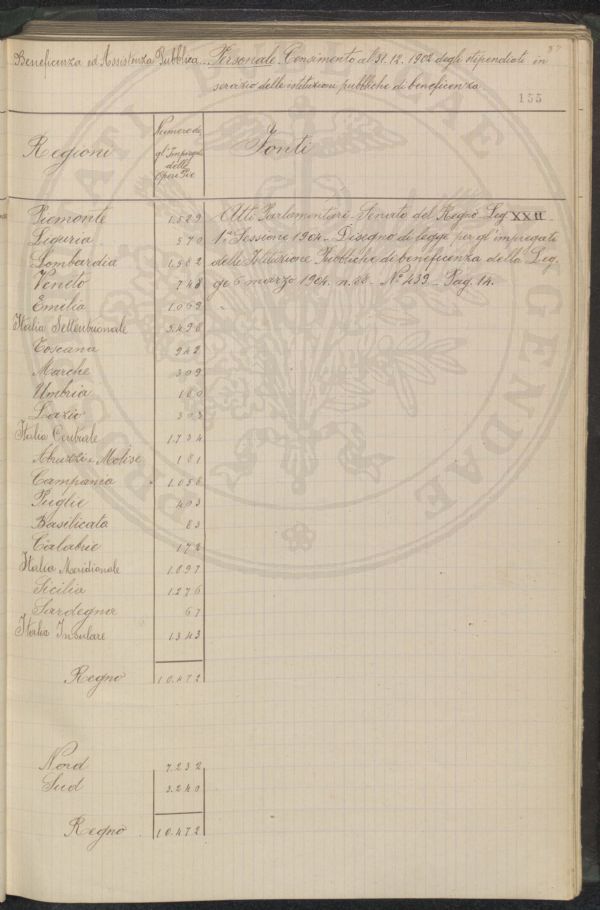 87
Beneficenza ed Assistenza Pubblica... Personale. Censimento al 31.12.1902 degli stipendiati in
servizio delle istituzioni pubbliche di beneficenza
155
Regioni
Numero de
gl'Impiegati
delle
Opere Pie
Fonti
Piemonte 1.529 Atti Parlamentari - Senato del Regno - Leg XXII
Liguria 570 1ª Sessione 1904 - Disegno di legge per gl'impiegati
Lombardia 1.582 delle Istituzione Pubbliche di beneficenza della Leg
Veneto 748 ge 6 marzo 1904. n. 88 - Nº 439 - Pag. 14.
Emilia 1.069
Italia Settentrionale 5.498
Toscana 942
Marche 309
Umbria 180
Lazio 303
Italia Centrale 1.734
Abruzzi e Molise 181
Campania 1.058
Puglie 403
Basilicata 83
Calabrie 172
Italia Meridionale 1.897
Sicilia 1.276
Sardegna 67
Italia Insulare 1.343
Regno 10.472
Nord 7.232
Sud 3.240
Regno 10.472